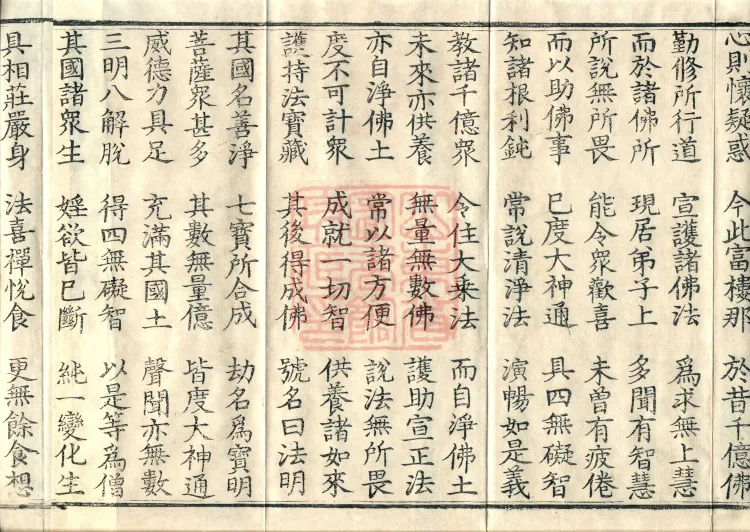 心則懷疑惑 今此富樓那 於昔千億佛
勤修所行道 宣護諸佛法 為求無上慧
而於諸佛所 現居弟子上 多聞有智慧
所說無所畏 能令衆歡喜 未曾有疲倦
而以助佛事 已度大神通 具四無礙智
知諸根利鈍 常說清淨法 演暢如是義
教諸千億衆 令住大乘法 而自淨佛土
未來亦供養 無量無數佛 護助宣正法
亦自淨佛土 常以諸方便 說法無所畏
度不可計衆 成就一切智 供養諸如來
護持法寶藏 其後得成佛 號名曰法明
其國名善淨 七寶所合成 劫名為寶明
菩薩衆甚多 其數無量億 皆度大神通
威德力具足 充滿其國土 聲聞亦無數
三明八解脫 得四無礙智 以是等為僧
其國諸衆生 婬欲皆已斷 純一變化生
具相莊嚴身 法喜禪悅食 更無餘食想